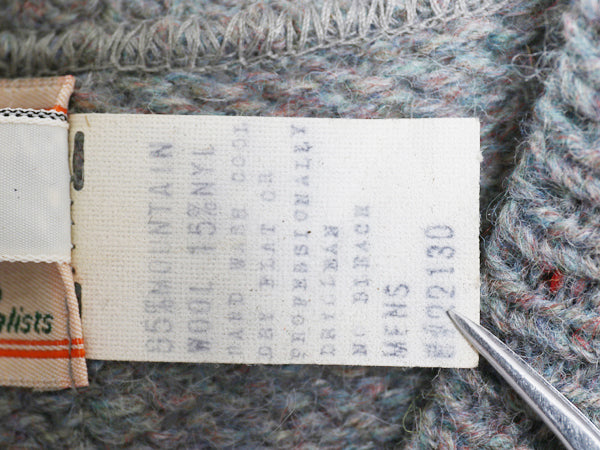 85%MOUNTAIN
WOOL 15%NYL
HAND WASH COOL
DRY FLAT OR
PROFESSIONALLY
DRYCLEAN
NO BLEACH
MENS
02130
alists